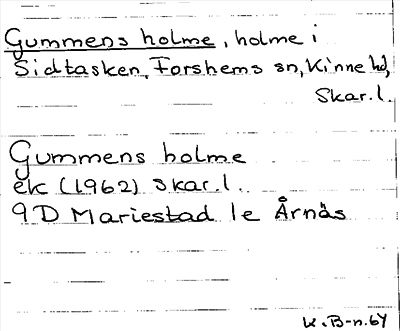 Gummens holme, holme i
Sidtasken, Forshems sn, Kinne hd,
Skar.l.
Gummens holme
ek (1962) Skar.l.
9D Mariestad 1e Årnäs
K.B-n.64